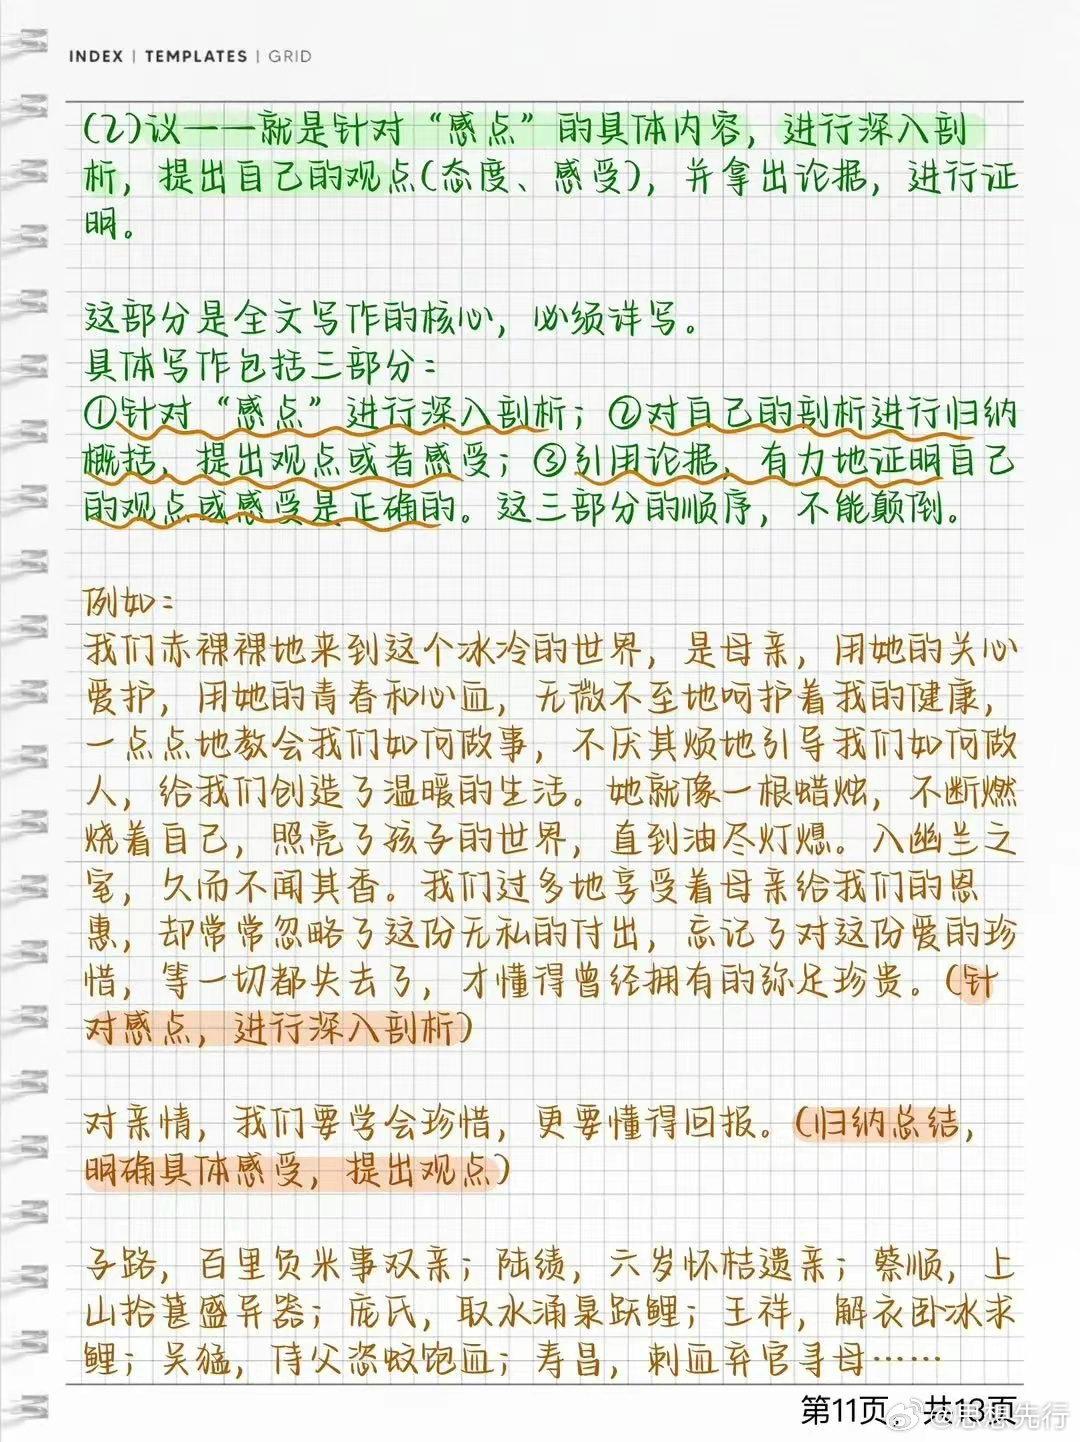 INDEX | TEMPLATES | GRID
(2)议——就是针对“感点”的具体内容，进行深入剖
析，提出自己的观点(态度、感受)，并拿出论据，进行证
明。
这部分是全文写作的核心，必须详写。
具体写作包括三部分：
①针对“感点”进行深入剖析；②对自己的剖析进行归纳
概括，提出观点或者感受；③引用论据，有力地证明自己
的观点或感受是正确的。这三部分的顺序，不能颠倒。
例如：
我们赤裸裸地来到这个冰冷的世界，是母亲，用她的关心
爱护，用她的青春和心血，无微不至地呵护着我的健康，
一点点地教会我们如何做事，不厌其烦地引导我们如何做
人，给我们创造了温暖的生活。她就像一根蜡烛，不断燃
烧着自己，照亮了孩子的世界，直到油尽灯熄。入幽兰之
室，久而不闻其香。我们过多地享受着母亲给我们的恩
惠，却常常忽略了这份无私的付出，忘记了对这份爱的珍
惜，等一切都失去了，才懂得曾经拥有的弥足珍贵。(针
对感点，进行深入剖析)
对亲情，我们要学会珍惜，更要懂得回报。(归纳总结，
明确具体感受，提出观点)
子路，百里负米事双亲；陆绩，六岁怀桔遗亲；蔡顺，上
山拾葚盛异器；庞氏，取水涌泉跃鲤；王祥，解衣卧冰求
鲤；吴猛，侍父恣蚊饱血；寿昌，刺血弃官寻母……
第11页，共13页
@思想先行